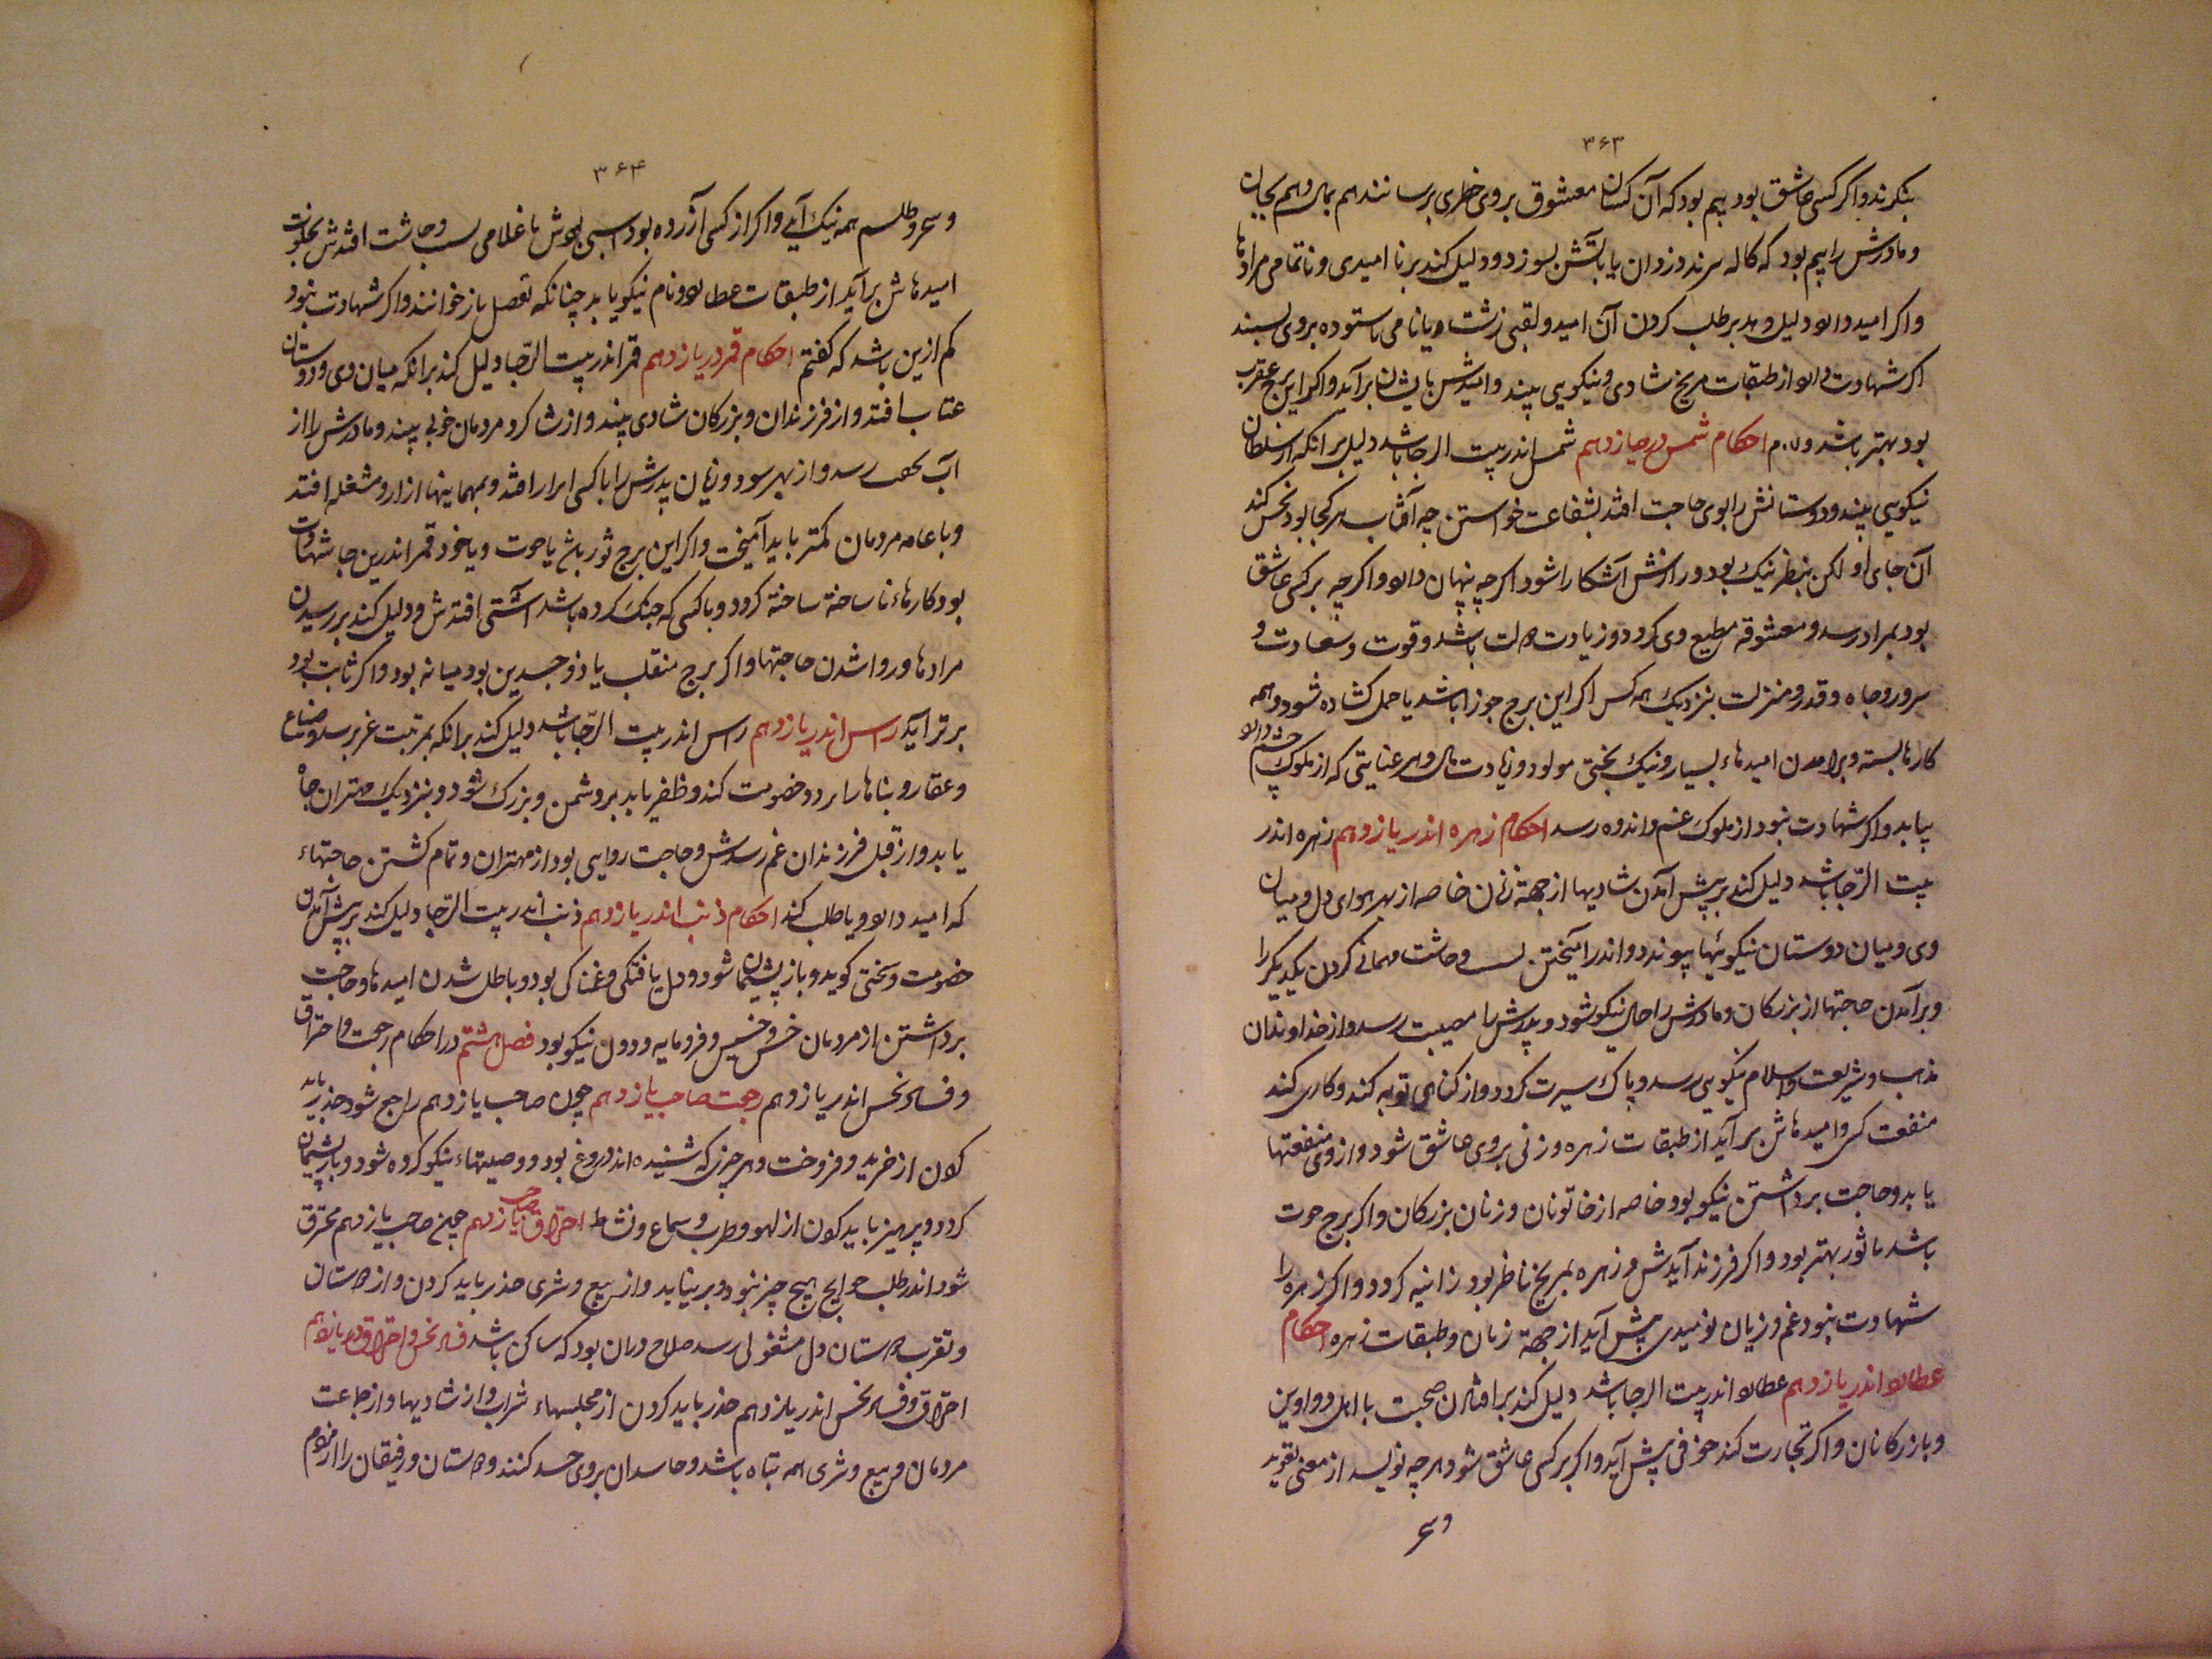 ۳۶۳
بنکرند و اکر کسی عاشق بود بیم بود که آن کسان معشوق بروی خطری برسانند هم بمال و هم بجان
و مادرش را بیم بود که کاله برند دزدان یا بآتش بسوزد و دلیل کند بر نا امیدی و ناتمامی مرادها
و اکر امید دارد دلیل دهد بر طلب کردن آن امید و لقبی زشت و یا نامی ناستوده بر وی بسبند
اکر شهادت دارد از طبقات مریخ شادی و نیکویی بیند و امیدش بایشان برآید و اکر این برج عقرب
بود بهتر باشد احکام شمس در یازدهم شمس اندر بیت الرجا باشد دلیل بر آنکه از سلطان
نیکویی بیند و دوستانش را بوی حاجت افتد بشفاعت خواستن چه آفتاب هر کجا بود نحس کند
آن جای را ولکن بنظر نیک بود و رازش آشکارا شود اکرچه پنهان دارد و اکر چه بر کسی عاشق
بود بمراد رسد و معشوقه مطیع وی کردد و زیادت دولت باشد و قوت و سعادت و
سرور و جاه و قدر و منزلت بنزدیک همه کس اکر این برج جوزا باشد یا حمل کشاده شود و همه
کارها بسته و برامدن امیدهاء بسیار و نیک بختی مولود و زیادت مال و هر عنایتی که از ملوک چشم دارد
بیابد و اکر شهادت نبود از ملوک غم و اندوه رسد احکام زهره اندر یازدهم زهره اندر
بیت الرّجا باشد دلیل کند بر پیش آمدن شادیها از جهة زنان خاصه از بهر هوای دل و میان
وی و میان دوستان نیکوئیها پیوندد و اندر آمیختن بی وحاشت مهمانی کردن یکدیکر را
و برآمدن حاجتها از بزرکان و مادرش را حال نیکو شود و پدرش را مصیبت رسد و از خداوندان
مذهب و شریعت و اسلام نیکویی رسد و پاک سیرت کردد و از کناهی توبه کند و کاری کند
منفعت کس و امیدهاش برآید از طبقات زهره و زنی بروی عاشق شود و از وی منفعتها
یابد و حاجت برداشتن نیکو بود خاصه از خاتونان و زنان بزرکان و اکر برج حوت
باشد یا ثور بهتر بود و اکر فرزند آیدش و زهره بمریخ ناظر بود زانیه کردد و اکر زهره را
شهادت نبود غم و زیان و نومیدی پیش آید از جهة زنان و طبقات زهره احکام
عطارد اندر یازدهم عطارد اندر بیت الرجا باشد دلیل کند بر افتادن صحبت با اهل دواوین
و بازرکانان و اکر تجارت کند خوفی پیش آید و اکر بر کسی عاشق شود هر چه نویسد از معنی تعوید
و سحر
۳۶۴
و سحر و طلسم همه نیک آید و اکر از کسی آزرده بود با غلامی بی وحاشت افتدش بخلوت
امیدهاش برآید از طبقات عطارد و نام نیکو یابد چنانکه بفصل باز خوانند و اکر شهادت نبود
کم ازین باشد که کفتم احکام قمر در یازدهم قمر اندر بیت الرّجا دلیل کند بر انکه میان وی و دوستان
عتاب افتد و از فرزندان و بزرکان شادی بیند و از شاکرد و مردمان خوبی بیند و مادرش را از
آب رسد و از بهر سود و زیان پدرش را با کسی افتد و بهمانیها ازار و مشغله افتد
و با عامه مردمان کمتر باید آمیخت و اکر این برج ثور باشد یا حوت و یا خود قمر اندرین جا شهادت
بود کارهاء ناساخته ساخته کردد و با کسی که جنک کرده باشد آشتی افتدش و دلیل کند بر رسیدن
مرادها و روا شدن حاجتها و اکر برج منقلب یا ذوجسدین بود میانه بود و اکر ثابت بود
برتر آید راس اندر یازدهم راس اندر بیت الرّجا باشد دلیل کند بر انکه بمرتبت عزیز رسد و ضیاع
و عقار و بناها را خصومت کند و ظفر یابد بر دشمن و بزرک شود و بنزدیک مهتران جاه
یابد و از قبل فرزندان غم رسدش و حاجت روایی بود از مهتران و تمام کشتن حاجتهاء
که امید دارد و یا طلب کند احکام ذنب اندر یازدهم ذنب اندر بیت الرّجا دلیل کند بر پیش آمدن
خصومت و سختی کوید و باز پشیمان شود و دل یافتکی و غمناکی بود و باطل شدن امیدها و حاجت
برداشتن از مردمان خسیس و فرومایه و دون نیکو بود فصل هشتم در احکام رجعت و احتراق
و فساد نحس اندر یازدهم رجعت صاحب یازدهم چون صاحب یازدهم راجع شود حذر باید
کردن از خرید و فروخت و هر چیزی که شنیده اند دروغ بود و وصیتهاء نیکو کرده شود و باز پشیمان
کردد و پرهیز باید کردن از لهو و طرب و سماع و نشاط احتراق صاحب یازدهم چون صاحب یازدهم محترق
شود اندر طلب حوایج هیچ چیز نبود و بر نیاید و از بیع و شری حذر باید کردن و از دوستان
و تقرب دوستان دل مشغولی رسد صلاح در آن بود که ساکن باشد فساد نحس و احتراق در یازدهم
احتراق و فساد نحس اندر یازدهم حذر باید کردن از مجلسهاء شراب و از شادیها و از جماعت
مردمان و بیع و شری همه تباه باشد و حاسدان بروی حسد کنند و دوستان و رفیقان را از مردم